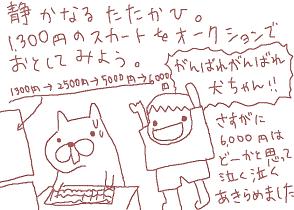 静かなるたたかひ。
1,300円のスカートをオークションで
おとしてみよう。
1300円→2500円→5000円→6,000円
がんばれがんばれ
犬ちゃん!!
さすがに
6,000円は
どーかと思って
泣く泣く
あきらめました